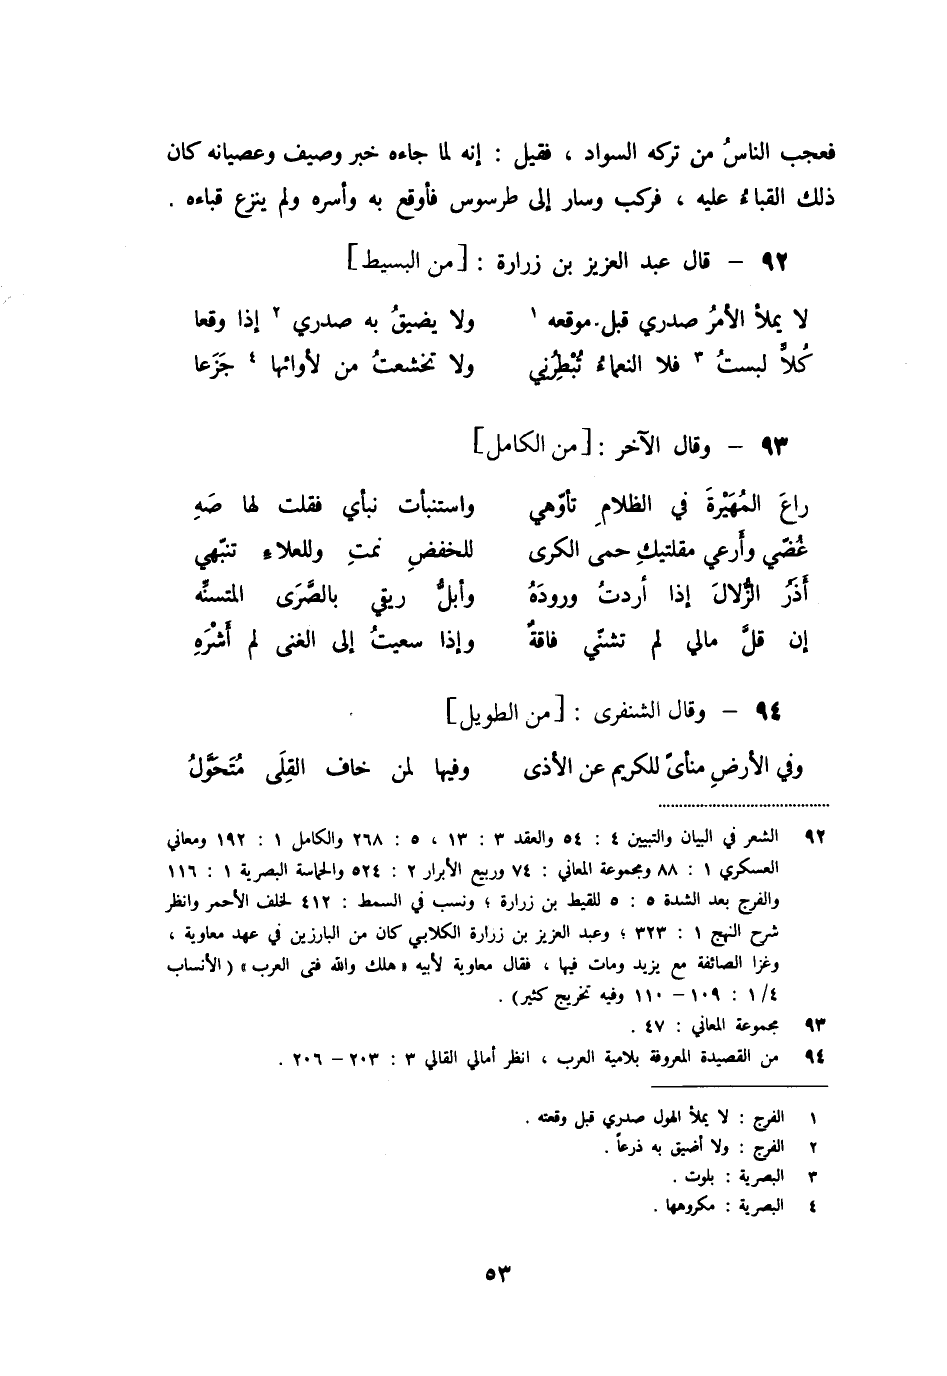 فعجب الناسُ من تركه السواد ، فقيل : إنه لما جاءه خبر وصيف وعصيانه كان
ذلك القباءُ عليه ، فركب وسار إلى طرسوس فأوقع به وأسره ولم ينزع قباءه .
٩٢ – قال عبد العزيز بن زرارة : [من البسيط]
لا يملأ الأمرُ صدري قبل موقعه ١ ولا يضيقُ به صدري ٢ إذا وقعا
كُلاًّ لبستُ ٣ فلا النعماءُ تُبْطِرُني ولا تخشعتُ من لأوائها ٤ جَزَعا
٩٣ – وقال الآخر : [من الكامل]
راعَ المُهَيْرةَ في الظلامِ تأوّهي واستنبأت نبأي فقلت لها صَهِ
غُضّي وأَرعي مقلتيكِ حمى الكرى للخفضِ نمتِ وللعلاءِ تنبّهي
أَذَرُ الزُّلالَ إذا أردتُ ورودَهُ وأبلُّ ريقي بالصَّرَى المتسنِّه
إن قلَّ مالي لم تشنّي فاقةٌ وإذا سعيتُ إلى الغنى لم أَشْرَهِ
٩٤ – وقال الشنفرى : [من الطويل]
وفي الأرضِ منأىً للكريم عن الأذى وفيها لمن خاف القِلَى مُتَحَوَّلُ
٩٢ الشعر في البيان والتبيين ٤ : ٥٤ والعقد ٣ : ١٣ ، ٥ : ٢٦٨ والكامل ١ : ١٩٢ ومعاني
العسكري ١ : ٨٨ ومجموعة المعاني : ٧٤ وربيع الأبرار ٢ : ٥٢٤ والحماسة البصرية ١ : ١١٦
والفرج بعد الشدة ٥ : ٥ للقيط بن زرارة ؛ ونسب في السمط : ٤١٢ لخلف الأحمر وانظر
شرح النهج ١ : ٣٢٣ ؛ وعبد العزيز بن زرارة الكلابي كان من البارزين في عهد معاوية ،
وغزا الصائفة مع يزيد ومات فيها ، فقال معاوية لأبيه «هلك والله فتى العرب» (الأنساب
٤/١ : ١٠٩ – ١١٠ وفيه تخريج كثير) .
٩٣ مجموعة المعاني : ٤٧ .
٩٤ من القصيدة المعروفة بلامية العرب ، انظر أمالي القالي ٣ : ٢٠٣ – ٢٠٦ .
١ الفرج : لا يملأ الهول صدري قبل وقعته .
٢ الفرج : ولا أضيق به ذرعاً .
٣ البصرية : بلوت .
٤ البصرية : مكروهها .
٥٣